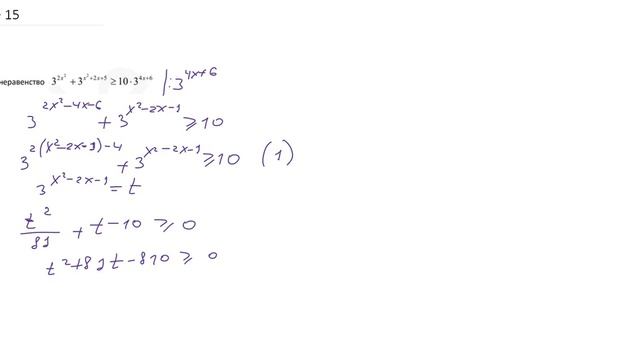 15
неравенство 3^{2x^2} + 3^{x^2+2x+5} ≥ 10 · 3^{4x+6} |: 3^{4x+6}
3^{2x^2-4x-6} + 3^{x^2-2x-1} ≥ 10
3^{2(x^2-2x-1)-4} + 3^{x^2-2x-1} ≥ 10 (1)
3^{x^2-2x-1} = t
t^2/81 + t - 10 ≥ 0
t^2 + 81t - 810 ≥ 0